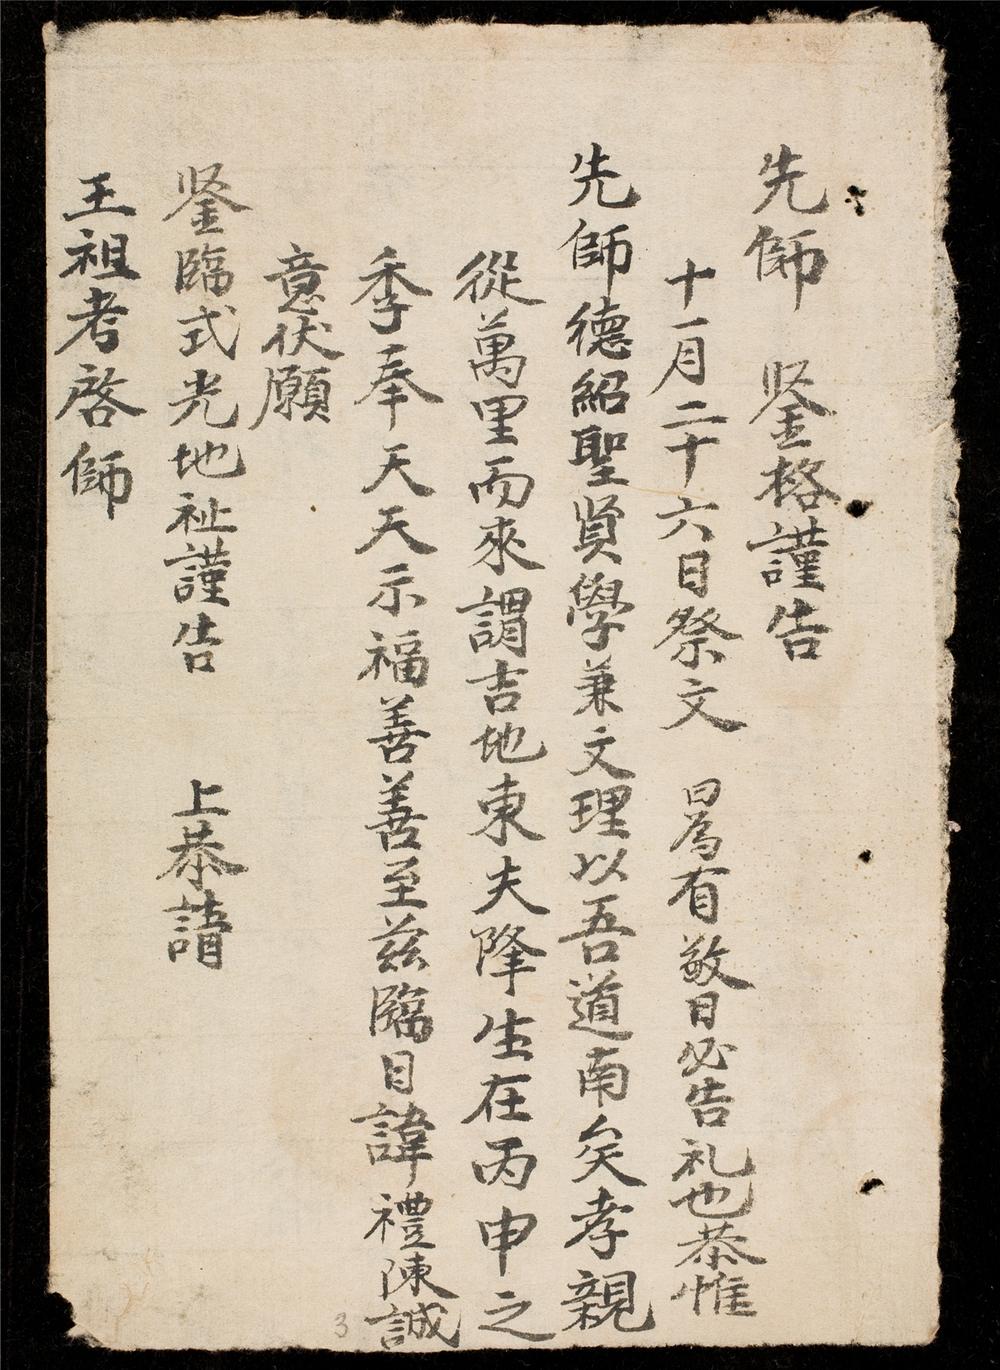 先師　鉴格謹告
十一月二十六日祭文　曰為有敬日必告礼也恭惟
先師德紹聖賢學兼文理以吾道南矣孝親
從萬里而來謂吉地東夫降生在丙申之
季奉天天示福善善至兹臨日諱禮陳誠
意伏願
鉴臨式光地祉謹告　上恭請
王祖考啓師
3